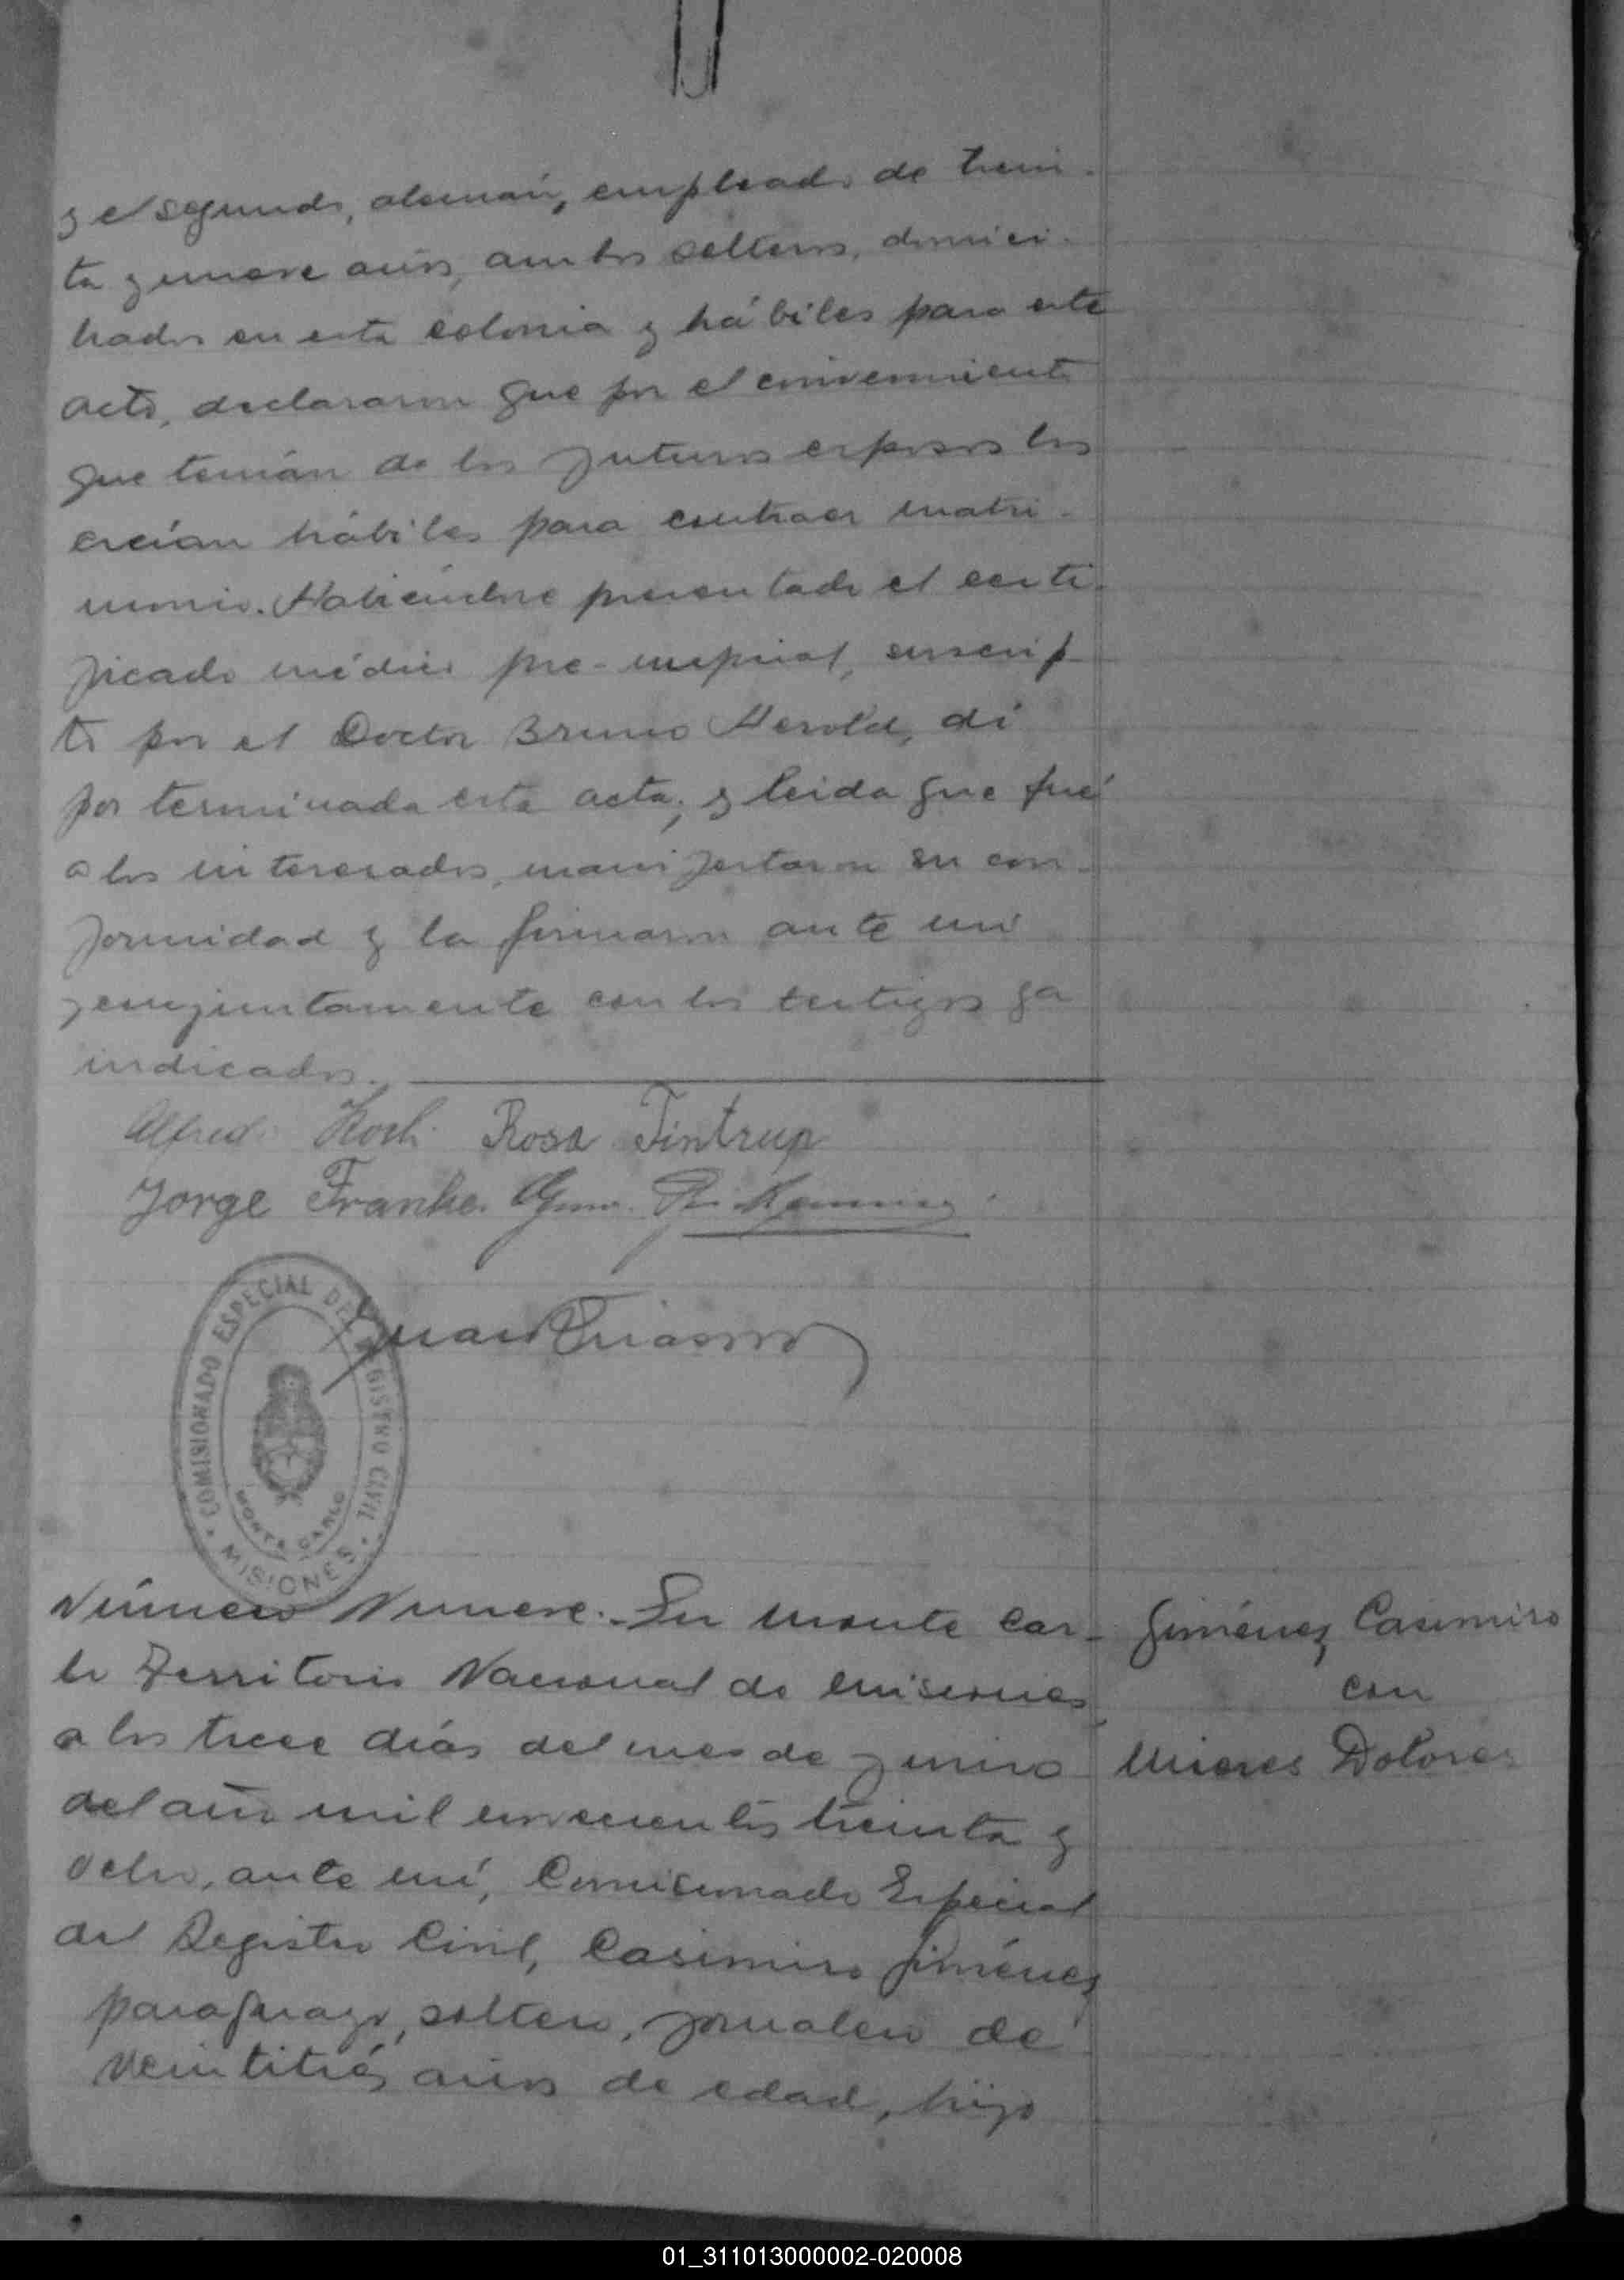 y el segundo, alemán, empleado de trein-
ta y nueve años, ambos solteros, domici-
liados en esta colonia y hábiles para este
acto, declararon que por el conocimiento
que tenían de los futuros esposos los
creían hábiles para contraer matri-
monio. Habiéndose presentado el certi-
ficado médico pre-nupcial, suscrip-
to por el Doctor Bruno Herold, dí
por terminada esta acta; y leida que fué
a los interesados, manifestaron su con-
formidad y la firmaron ante mi
conjuntamente con los testigos ya
indicados.
Alfred Koch Rosa Tintrup
Jorge Franke
Juan
COMISIONADO ESPECIAL DEL REGISTRO CIVIL
MONTE CARLO
MISIONES
Número Nueve.- En Monte Car-
lo Territorio Nacional de Misiones
a los trece días del mes de junio
del año mil novecientos treinta y
ocho, ante mí, Comisionado Especial
del Registro Civil, Casimiro Jiménez
paraguayo, soltero, jornalero de
veintitrés años de edad, hijo
Jiménez Casimiro
con
Mieres Dolores
01_311013000002-020008